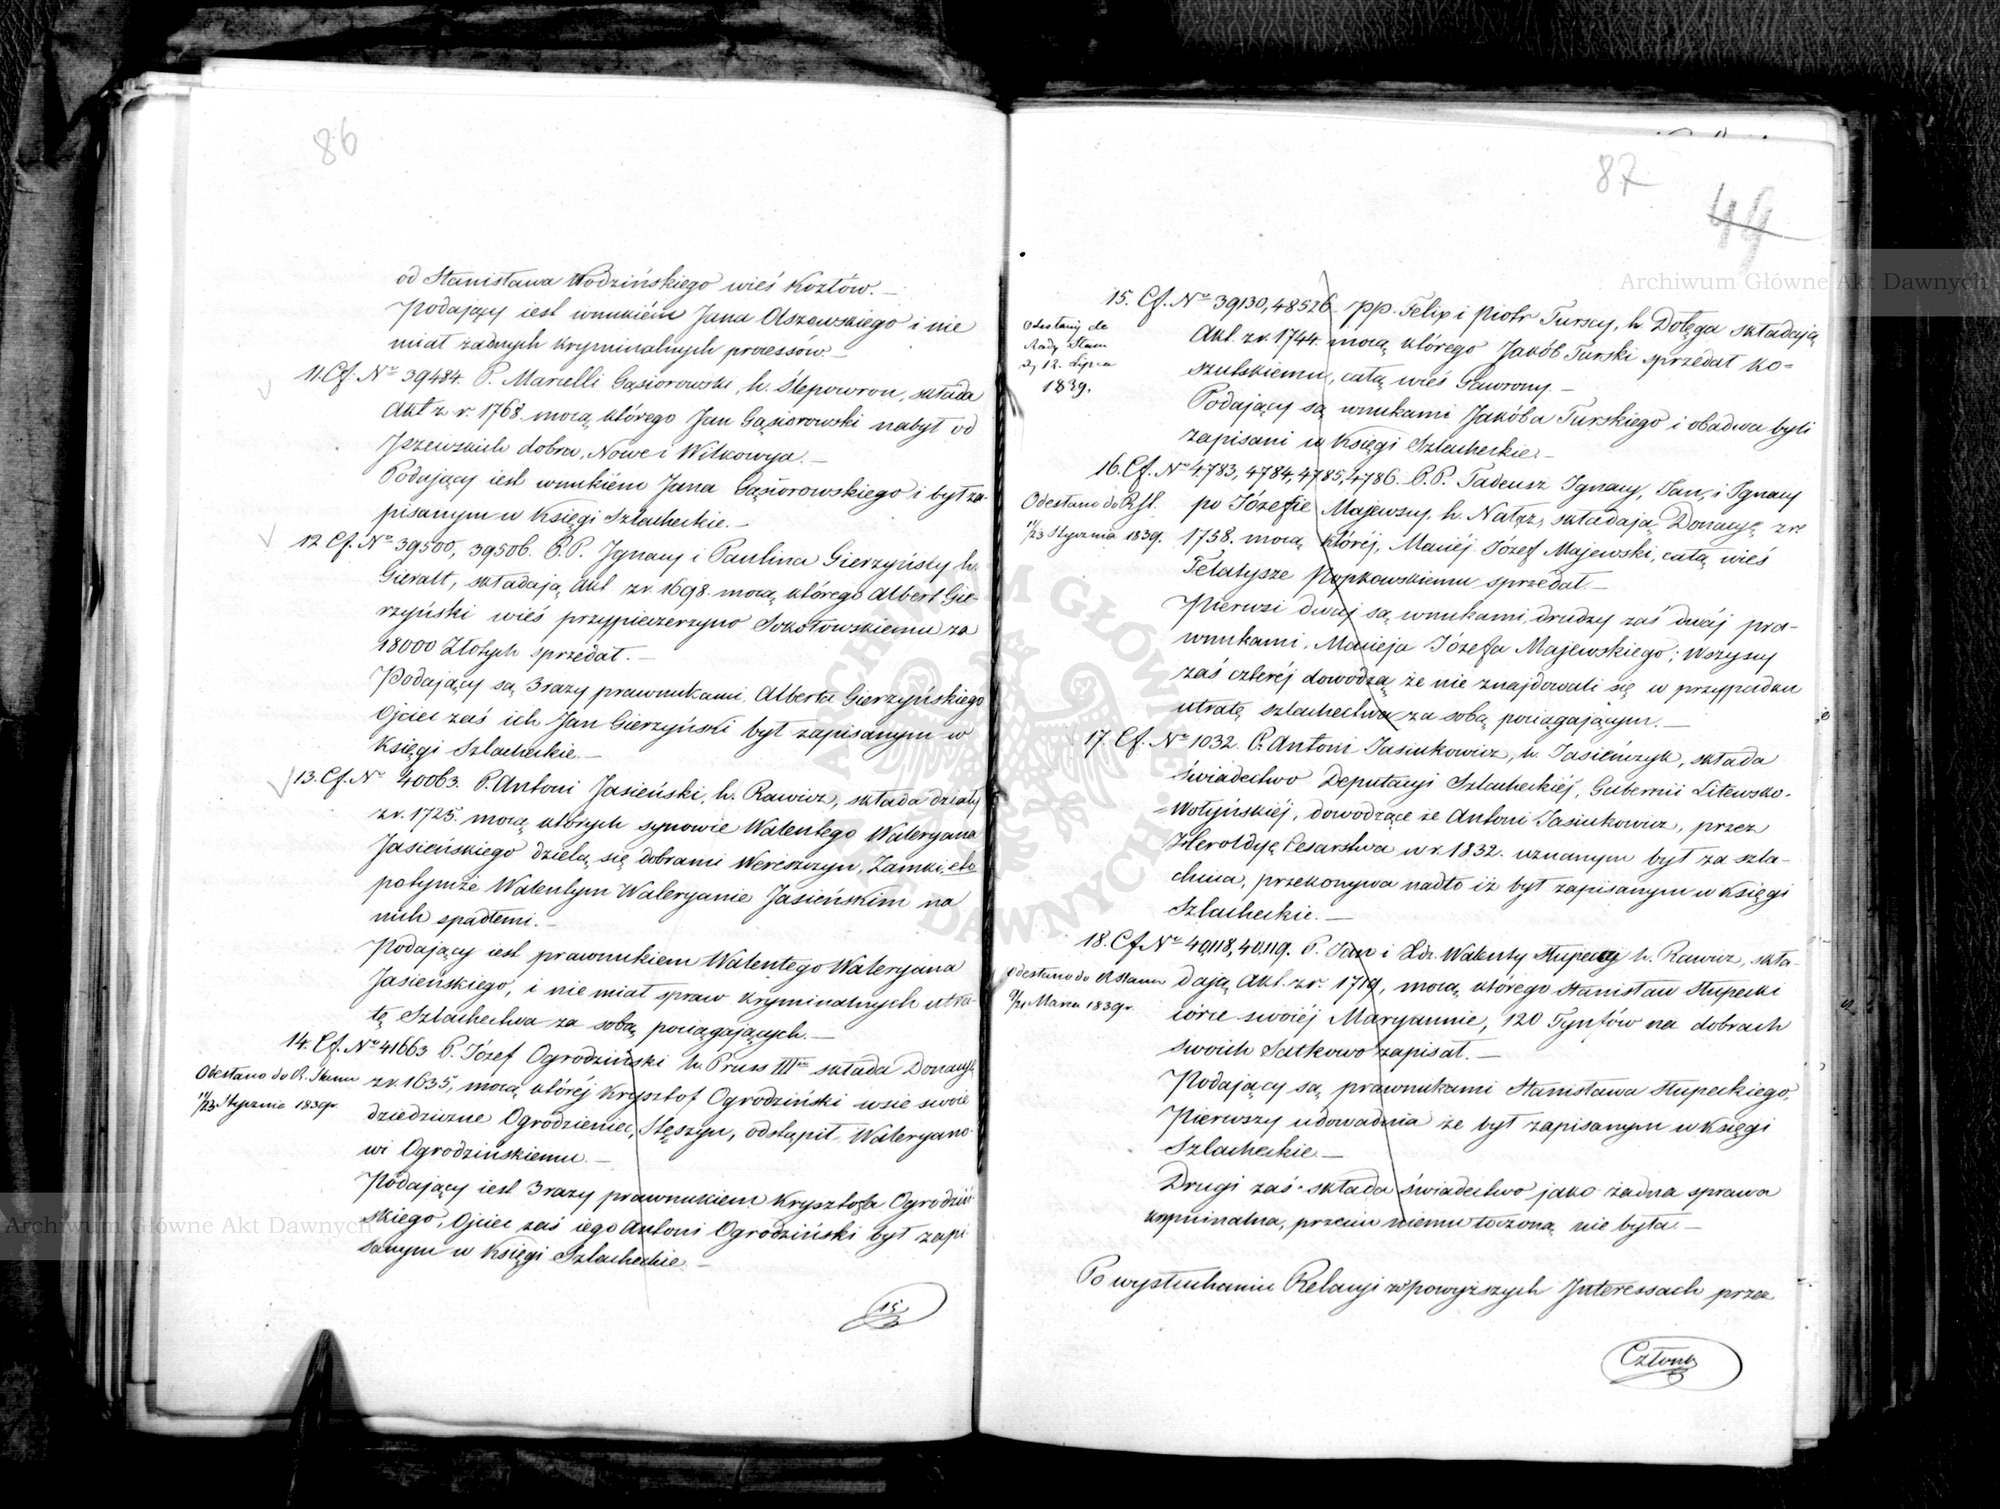 86
od Stanisława Wodzińskiego wieś Kozłów. —
Podający iest wnukiem Jana Olszewskiego i nie
miał żadnych kryminalnych processów. —
11. Cf. No 39484. P. Marcelli Gąsiorowski, h. Slepowron, składa
Akt z r. 1768. mocą którego Jan Gąsiorowski nabył od
dobra, Nowe i Witkowya. —
Podający iest wnukiem Jana Gąsiorowskiego i był za-
pisanym w Księgi Szlacheckie. —
12 Cf. No 39500, 39506. P.P. Ignacy i Paulina Gierzyńscy h.
Gieralt, składają Akt z r. 1698. mocą którego Albert Gie-
rzyński wieś przypieczerzyno Sokołowskiemu za
18000 Złotych sprzedał. —
Podający są 3 razy prawnukami, Alberta Gierzyńskiego
Ojciec zaś ich Jan Gierzyński był zapisanym w
Księgi Szlacheckie. —
13. Cf. No 40063. P. Antoni Jasieński, h. Rawicz, składa działy
z r. 1725. mocą których synowie Walentego Waleryana
Jasieńskiego dzielą się dobrami Wereszczyn, Zamki, etc
potymże Walentym Waleryanie Jasieńskim na
nich spadłemi. —
Podający iest prawnukiem Walentego Waleryana
Jasieńskiego, i nie miał spraw kryminalnych utra-
tę Szlachectwa za sobą pociągających. —
14. Cf. No 41663 P. Józef Ogrodziński h. Pruss III składa Donacyę
Odesłano do R. Stanu
11/23 Stycznia 1839 r.
z r. 1635, mocą któréj Krysztof Ogrodziński wsie swoie
dziedziczne Ogrodzieniec, Stęszyn, odstąpił Waleryano-
wi Ogrodzińskiemu. —
Podający iest 3 razy prawnukiem Krysztofa Ogrodziń-
skiego, Ojciec zaś iego Antoni Ogrodziński był zapi-
sanym w Księgi Szlacheckie. —
15
87
44
15. Cf. No 39130, 48526. PP. Felix i Piotr Turscy, h. Dołęga składają
Odesłany do
Rady Stanu
12. Lipca
1839.
Akt. z r. 1744. mocą którego Jakób Turski sprzedał Ko-
szutskiemu, całą wieś Gawrony. —
Podający są wnukami Jakóba Turskiego i obadwa byli
zapisani w Księgi Szlacheckie. —
16. Cf. No 4783, 4784, 4785, 4786. P.P. Tadeusz Ignacy, Jan, i Ignacy
Odesłano do R. St.
11/23 Stycznia 1839.
po Józefie Majewscy, h. Nałęz, składają Donacyę z r.
1758. mocą któréj, Maciéj Józef Majewski, całą wieś
Telatysze Popkowskiemu sprzedał. —
Pierwsi dwaj są wnukami, drudzy zaś dwaj pra-
wnukami, Macieja Józefa Majewskiego; Wszyscy
zaś czteréj dowodzą że nie znajdowali się w przypadku
utratę szlachectwa za sobą pociągającym. —
17. Cf. No 1032. P. Antoni Jasiukowicz, h. Jasieńczyk, składa
świadectwo Deputacyi Szlacheckiéj, Gubernii Litewsko-
-Wołyńskiéj, dowodzące że Antoni Jasiukowicz, przez
Heroldyę Cesarstwa w r. 1832. uznanym był za szla-
chcica, przekonywa nadto iż był zapisanym w Księgi
Szlacheckie. —
18. Cf. No 40118, 40119. P. Jan i Zdz. Walenty Słupeccy h. Rawicz, skła-
Odesłano do R Stanu
9/21 Marca 1839 r.
dają Akt. z r. 1719, mocą którego Stanisław Słupecki
córce swoiéj Maryannie, 120 Tynfów na dobrach
swoich Sutkowo zapisał. —
Podający są prawnukami Stanisława Słupeckiego,
Pierwszy udowadnia że był zapisanym w Księgi
Szlacheckie. —
Drugi zaś składa świadectwo jako żadna sprawa
kryminalna, przeciw niemu toczoną nie była. —
Po wysłuchaniu Relacyi w powyższych Interessach przez
Członk
Archiwum Główne Akt Dawnych
Archiwum Główne Akt Dawnych
ARCHIWUM GŁÓWNE AKT DAWNYCH